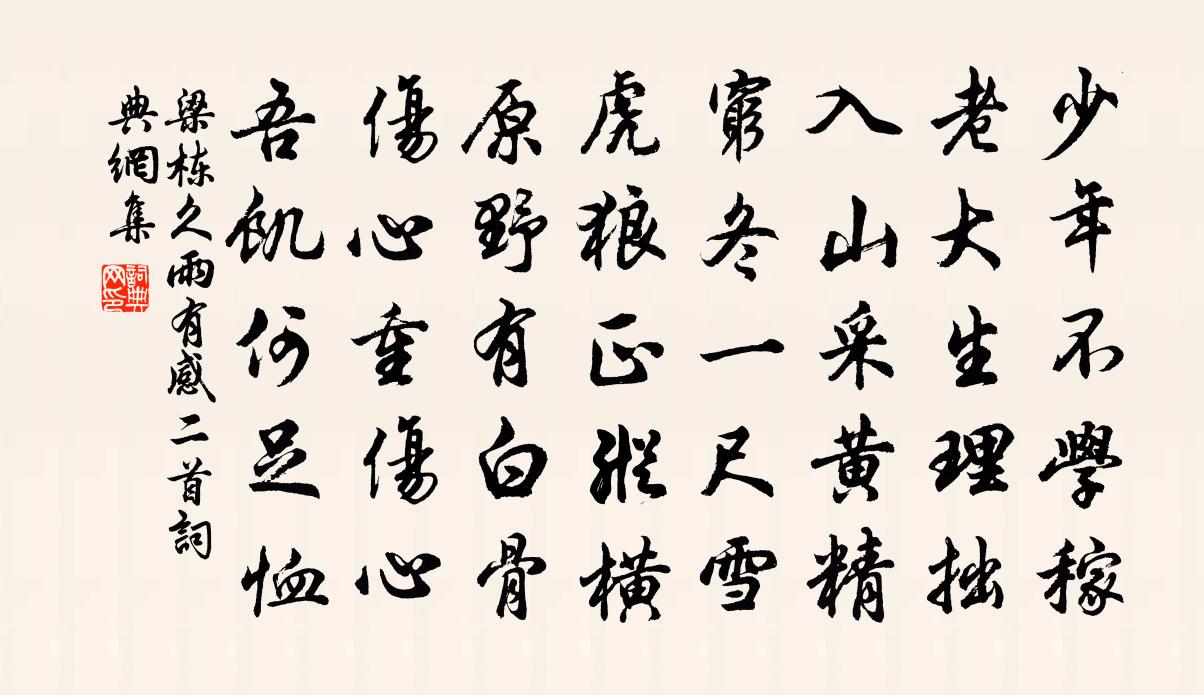 少年不學稼
老大生理拙
入山采黃精
窮冬一尺雪
虎狼正縱橫
原野有白骨
傷心重傷心
吾飢何足恤
梁栋久雨有感二首詞
典網集
詞典
网印